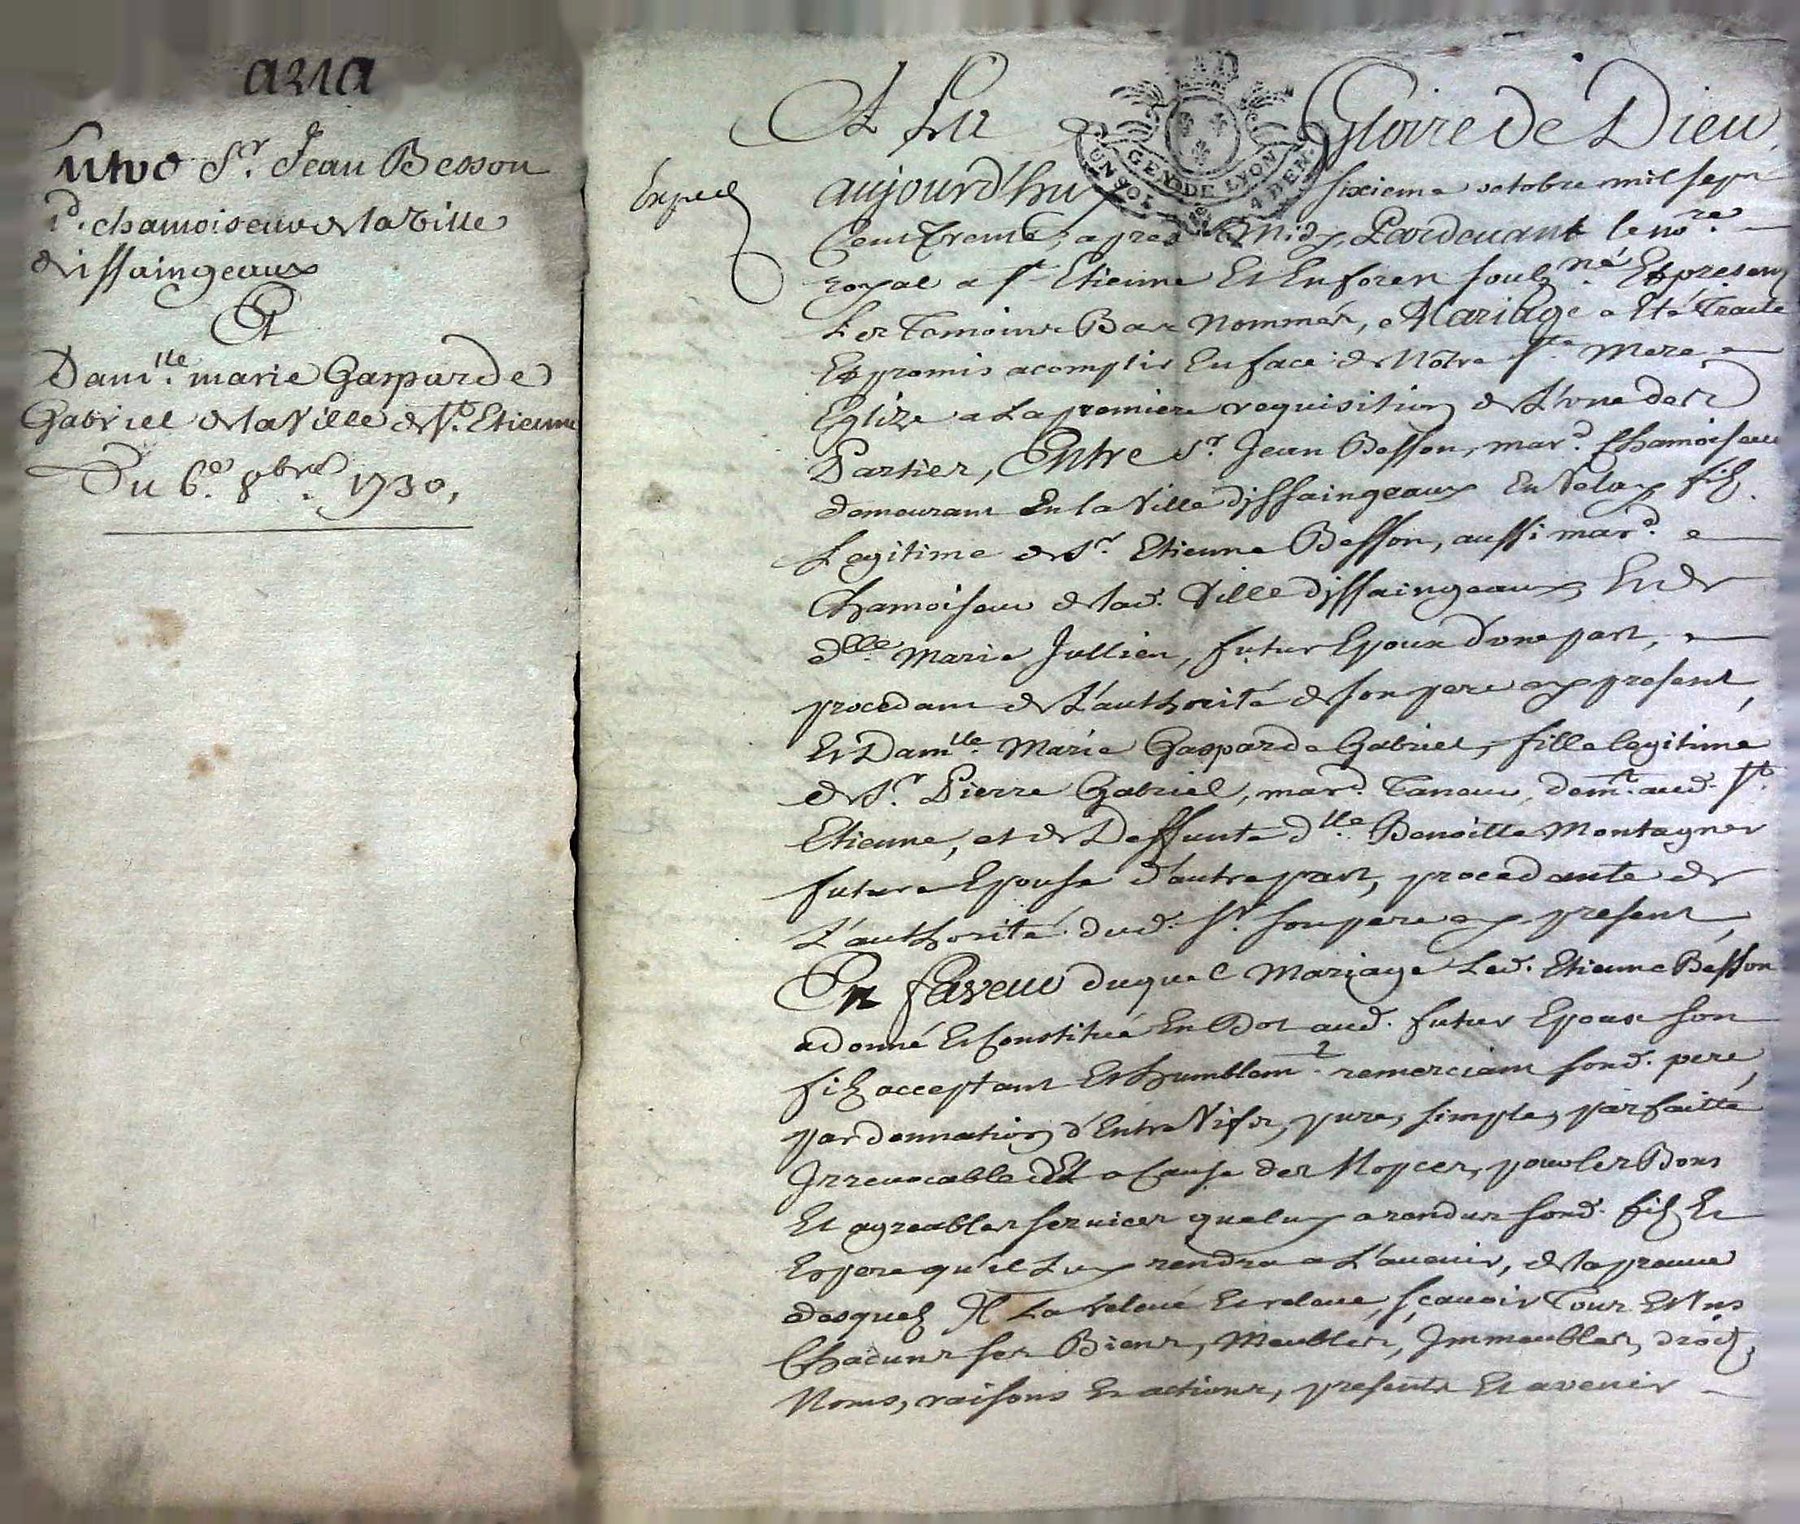 Sr. Jean Besson
chamoiseur de la Ville
dissaingeaux
Et
Damlle. marie Gasparde
Gabriel de la Ville de St. Etienne
Du 6e. 8bre. 1730,
Exped
A La Gloire de Dieu,
GEN. DE LYON
UN SOL 4 DEN.
aujourd'huy sixieme octobre mil sept
Cent Trente, apres Midy, Pardevant le nore.
royal a St Etienne Et En forez soubzné. Et presents
Les Temoins Bas Nommés, Mariage a Eté Traité
Et promis acomplir En face de Notre Ste Mere
Eglize a La premiere requisition de L'une des
Parties, Entre Sr. Jean Besson, mard. Chamoiseur
demeurant En la Ville dissaingeaux En Velay filz
Legitime de Sr. Etienne Besson, aussi mard.
Chamoiseur de lad. Ville dissaingeaux, Et de
dlle. Marie Jullien, futur Epoux d'une part,
procedant de L'authorité de son pere icy present,
Et Damlle. Marie Gasparde Gabriel, fille legitime
de Sr. Pierre Gabriel, mard. Taneur, demt. aud. St.
Etienne, et de Deffunte dlle. Benoitte Montagner
future Epouse d'autre part, procedante de
L'authorité dud. Sr. son pere icy present,
En faveur duquel Mariage Led. Etienne Besson
a donné Et Constitué En Dot aud. futur Epoux son
filz acceptant Et humblemt. remerciant sond. pere,
par donnation d'Entre Vifs, pure, simple, parfaitte
Irrevocable Et a Cause des Nopces, pour les Bons
Et agreables services que luy a rendus sond. filz Et
Espere qu'il Luy rendra a L'avenir, de la preuve
desquelz Il La relevé Et releve, sçavoir Tous Et Uns
Chacuns ses Biens, Meubles, Immeubles, droitz,
Noms, raisons Et actions, presents Et avenir